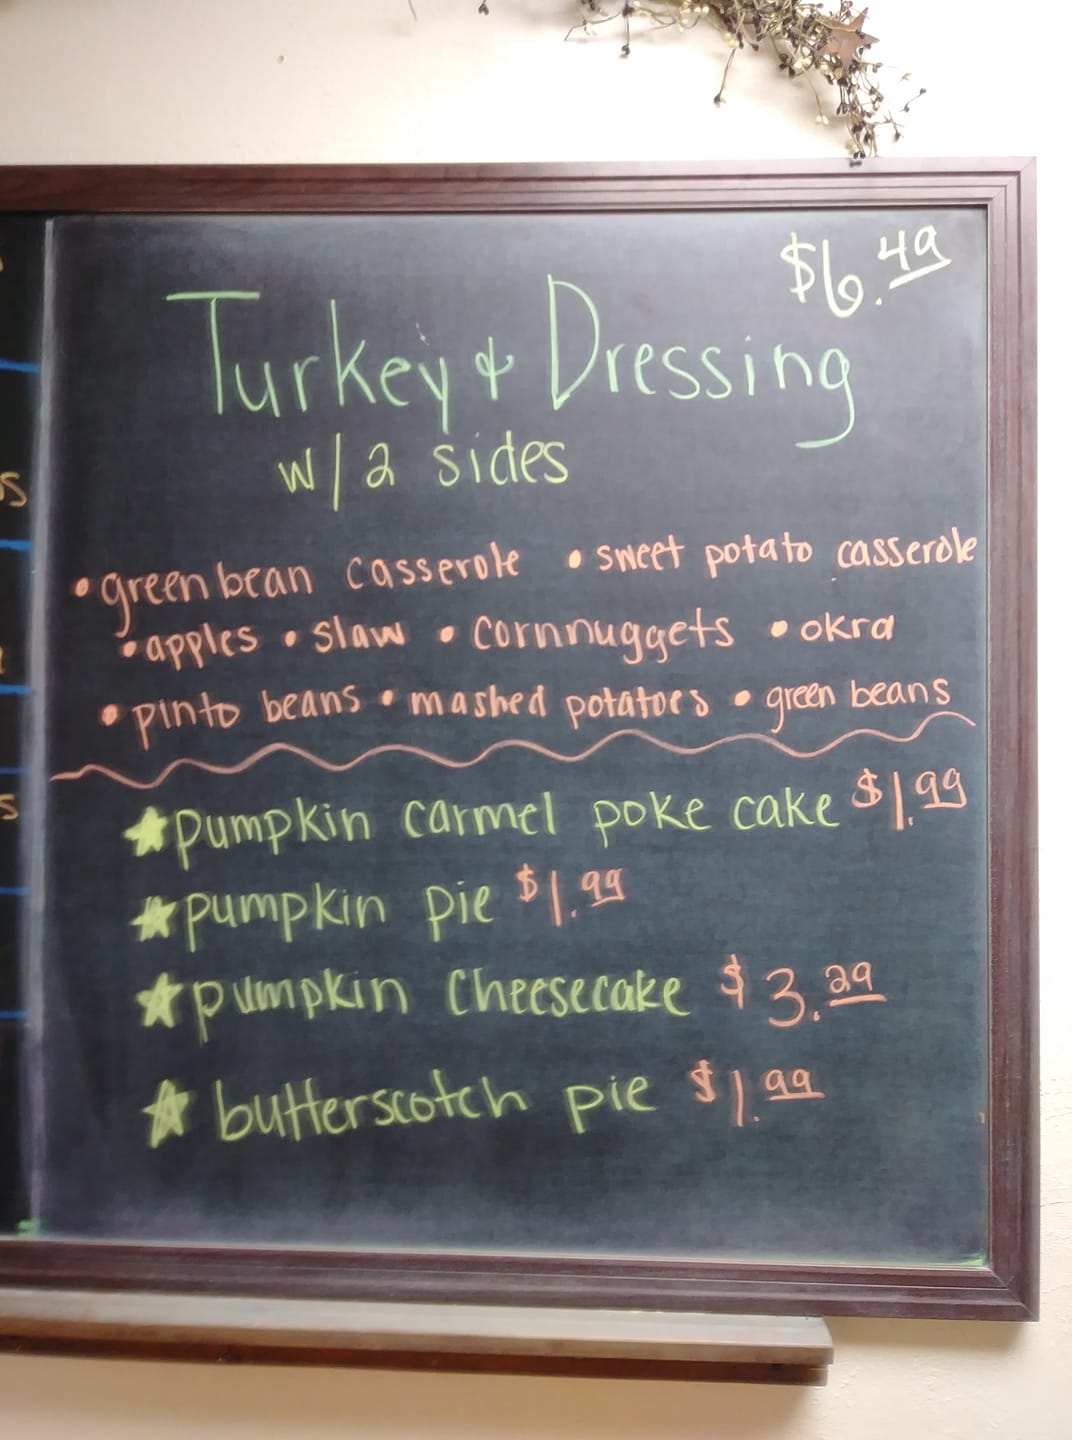 $6.49
Turkey & Dressing
w/2 sides
• green bean casserole • sweet potato casserole
• apples • slaw • cornnuggets • okra
• pinto beans • mashed potatoes • green beans
★ pumpkin carmel poke cake $1.99
★ pumpkin pie $1.99
★ pumpkin cheesecake $3.29
★ butterscotch pie $1.99